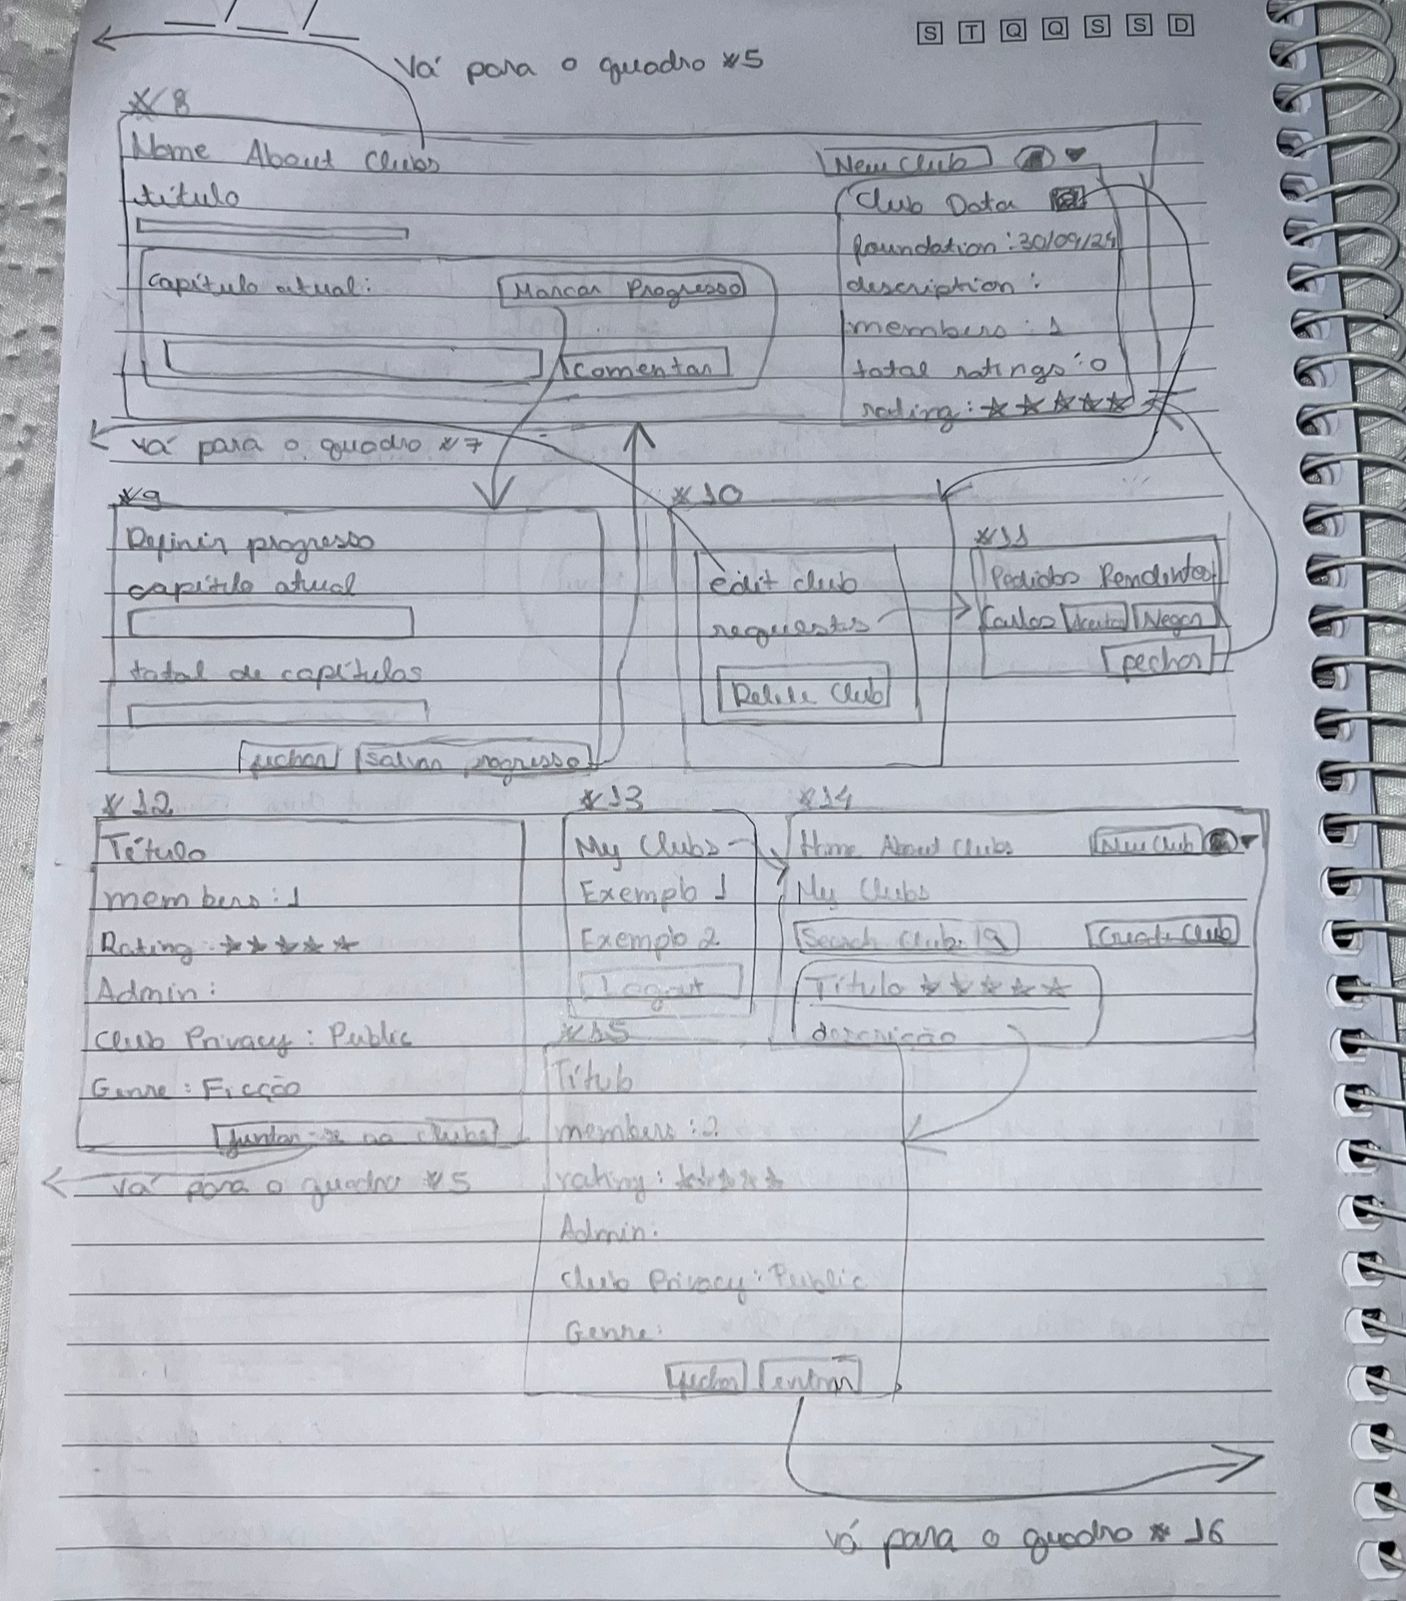 S T Q Q S S D
Vá para o quadro *5
*8
Home About Clubs New Club
título
Club Data
foundation: 30/09/24
capítulo atual: Marcar Progresso
description:
members: 1
Comentar
total ratings: 0
rating: ★★★★★
vá para o quadro *7
*9
Definir progresso
capítulo atual
total de capítulos
fechar salvar progresso
*10
edit club
requests
Delete Club
*11
Pedidos Pendentes
Carlos Aceitar Negar
fechar
*12
Título
members: 1
Rating: ★★★★★
Admin:
Club Privacy: Public
Genre: Ficção
Juntar-se ao clube
vá para o quadro *5
*13
My Clubs
Exemplo 1
Exemplo 2
Logout
*14
Home About Clubs New Club
My Clubs
Search Club Create Club
Título ★★★★★
descrição
*15
Título
members: 2
rating: ★★★★★
Admin:
Club Privacy: Public
Genre:
fechar entrar
vá para o quadro *16